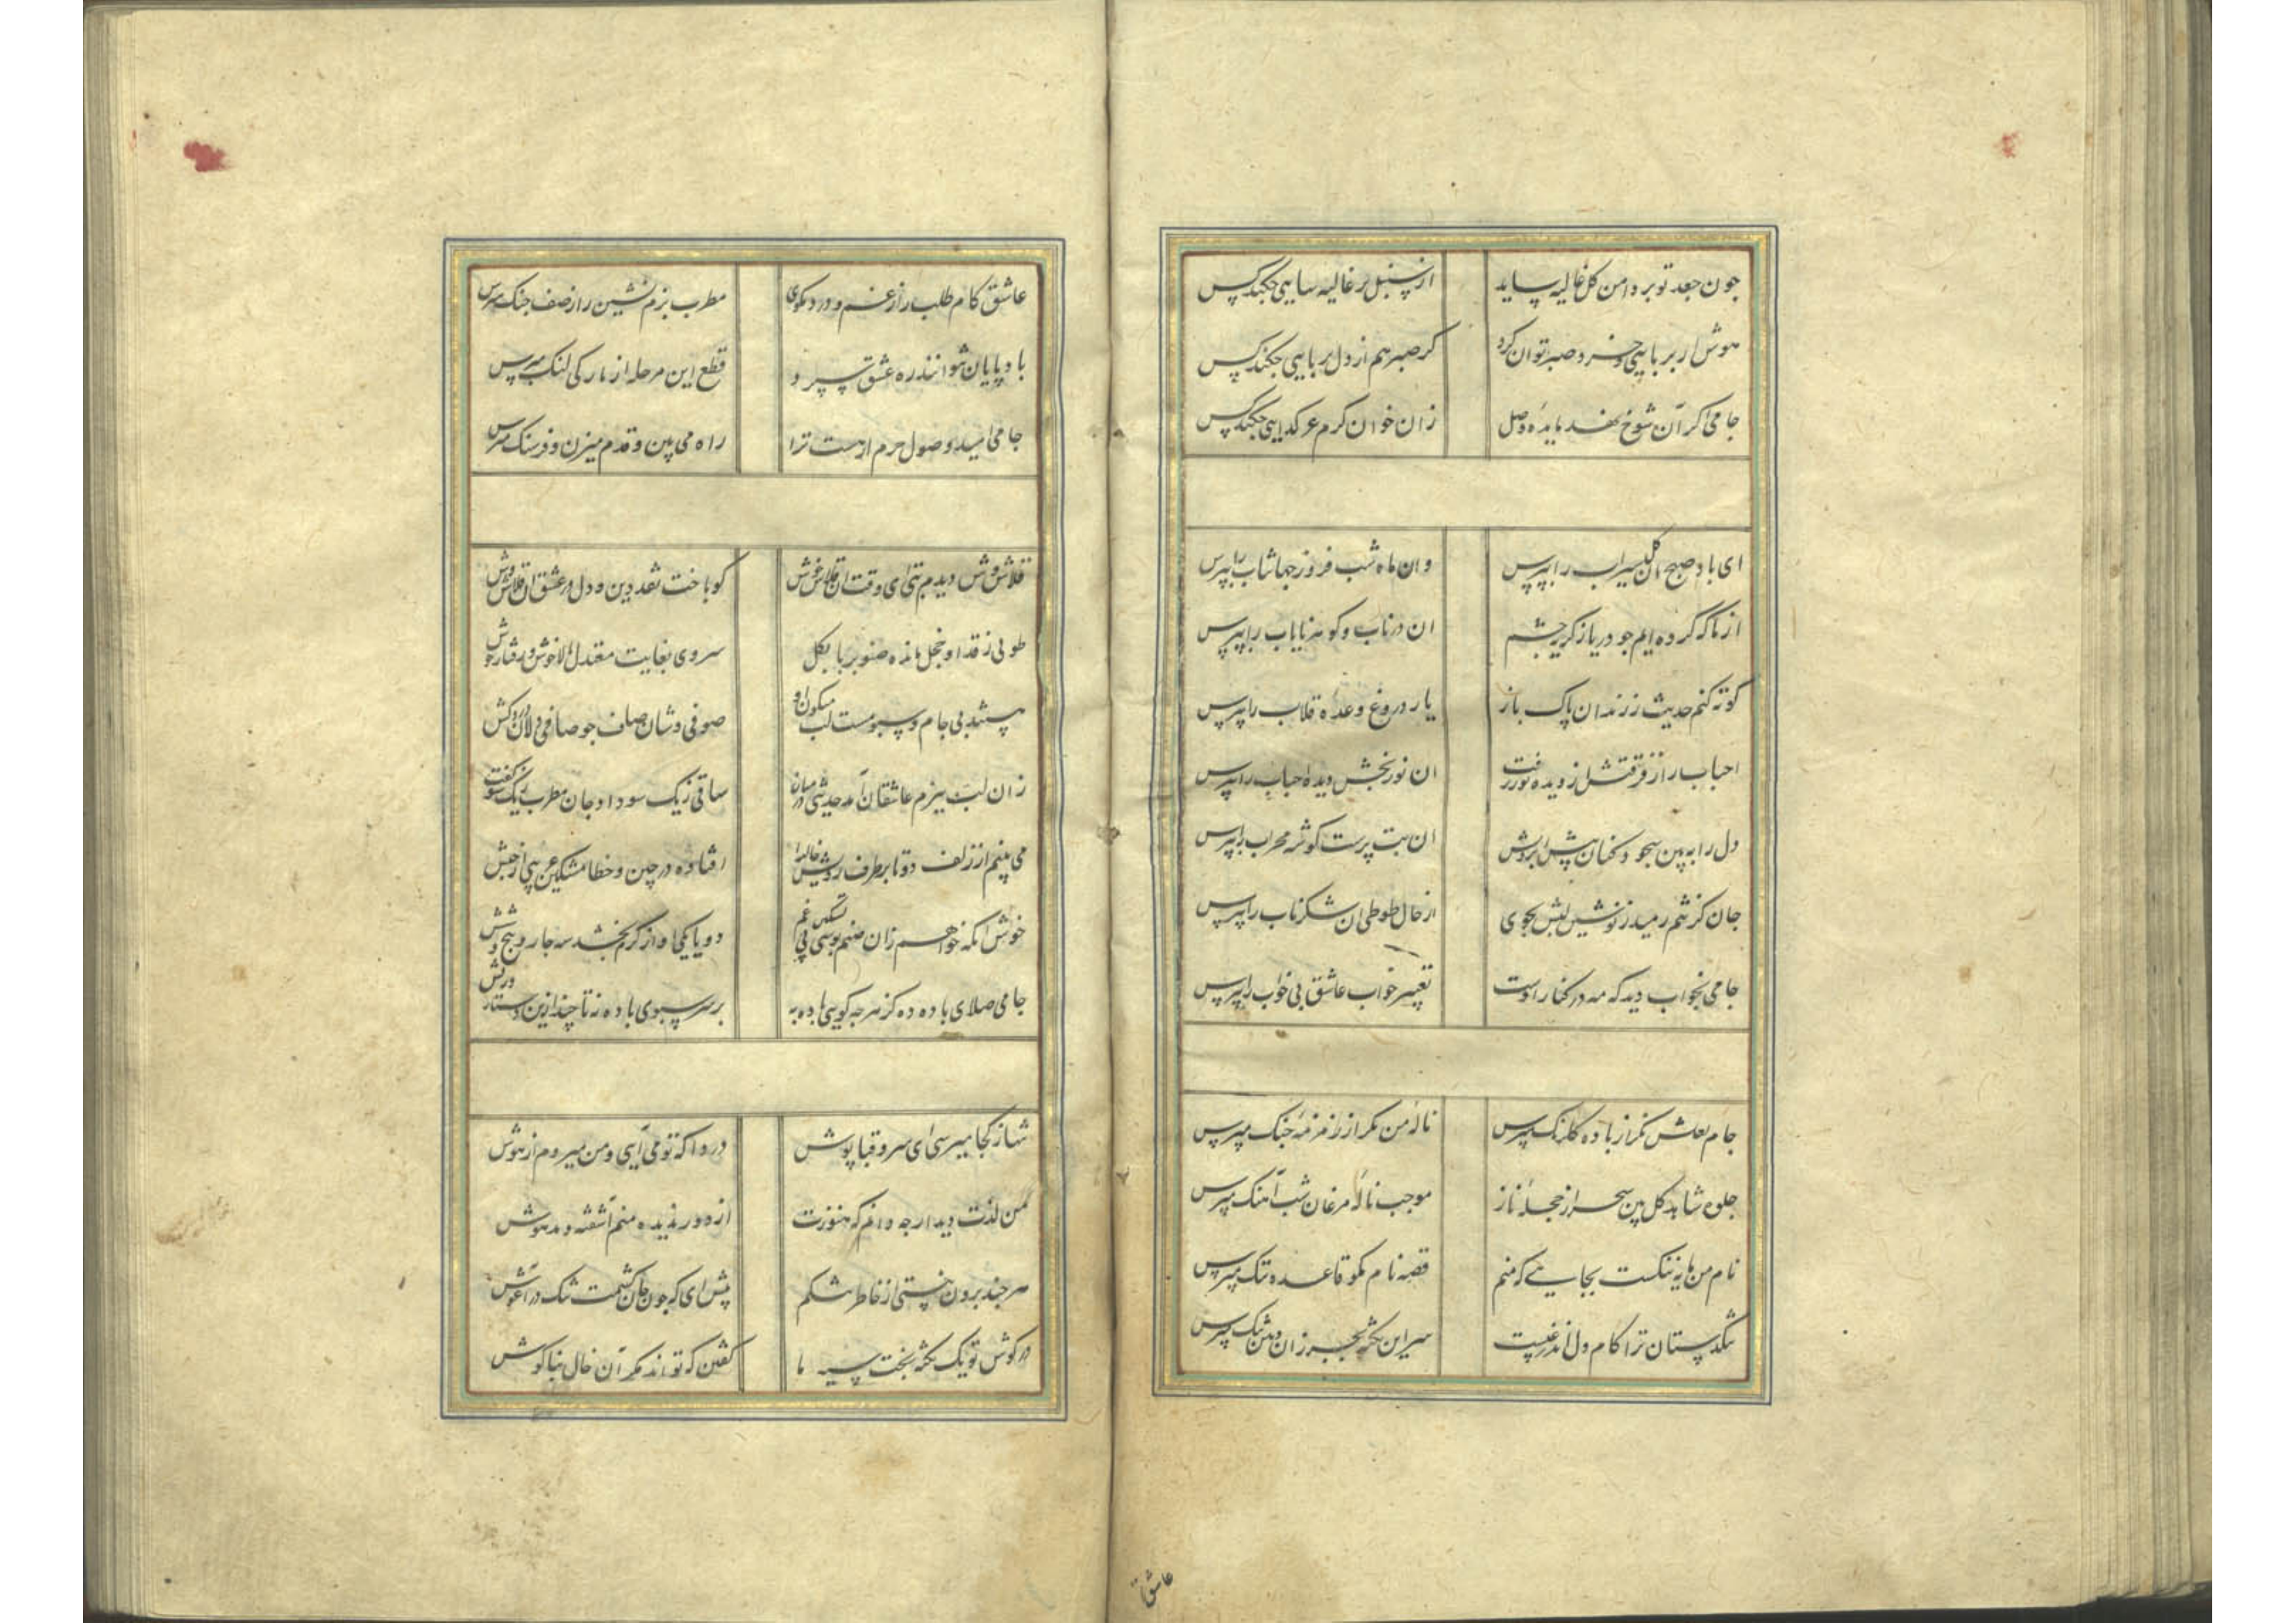 چون جعد تو بر دامن کل غالیه ساید از سنبل تر غالیه سایی چکند کس
هوش ار بربایی و خرد صبر توان کرد کر صبر هم از دل بربایی چکند کس
جامی اکر آن شوخ نهد مایدهٔ وصل زان خوان کرم عر کدایی چکند کس
ای باد صبح ان کل سیراب را بپرس وان ماه شب فروز جهانتاب را بپرس
از ما که کرده ایم جو دریا ز کریه چشم ان در ناب و کوهر نایاب را بپرس
کوته کنم حدیث ز رندان پاک باز یار دروغ وعدهٔ قلاب را بپرس
احباب را ز فرقتش از دیده نور رفت ان نوربخش دیدهٔ احباب را بپرس
دل را ببین سجود کنان پیش ابروش ان بت پرست کوشهٔ محراب را بپرس
جان کز تنم رمید ز نوشین لبش بجوی از حال طوطی ان شکر ناب را بپرس
جامی بخواب دید که مه در کنار اوست تعبیر خواب عاشق بی خواب را بپرس
جام لعلش نکر از باده کلرنک مپرس نالهٔ من نکر از زمزمهٔ جنک مپرس
جلوهٔ شاهد کل بین سحر از حجلهٔ ناز موجب نالهٔ مرغان شب آهنک مپرس
نام من مایهٔ ننکست بجایی که منم قصهٔ نام مکو قاعدهٔ ننک مپرس
تنکدستان ترا کام دل اندر غیبت سر این نکته بجز زان دهن تنک مپرس
عاشق
عاشق کام طلب را ز غم و درد مکوی مطرب بزم نشین را ز صف جنک مپرس
باد پایان شو انند ره عشق سپرد قطع این مرحله از بارکی لنک مپرس
جامی امید وصول حرم ار هست ترا راه می بین و قدم میزن و فرسنک مپرس
قلاش وش دیدم بتی ای وقت ان قلاش خوش کو باخت نقد دین و دل در عشق ان قلاش وش
طوبی ز قد او خجل مانده صنوبر پا بکل سروی بغایت معتدل بالا خوش و رفتار خوش
شد بی جام و سبو مست لب میکون او صوفی وشان صاف جو صافی دلان دردکش
زان لب ببزم عاشقان آمد حدیثی در میان ساقی ز یک سو داد جان مطرب ز یک سو رفت غش
می بینم از زلف دوتا بر طرف رویش خالها افتاده در چین و خطا مشکین عربی از حبش
خوش انکه خواهم زان صنم بوسی پی تسکین غم دو یا یکی او از کرم بخشد سه چار و پنج و شش
جامی صلای باده ده کز هر چه کویی باده به بر سر سبوی باده نه تا چند ازین دستار ورش
تنها ز کجا میرسی ای سرو قباپوش دردا که تو می آیی و من میروم از هوش
من لذت دیدار چه دانم که هنوزت از دور ندیده منم آشفته و مدهوش
هر چند برون نیستی از خاطر تنکم پیش ای که چون جان کشمت تنک در آغوش
در کوش تو یک نکته ز بخت سیه ما کفتن که تواند مکر آن خال بناکوش